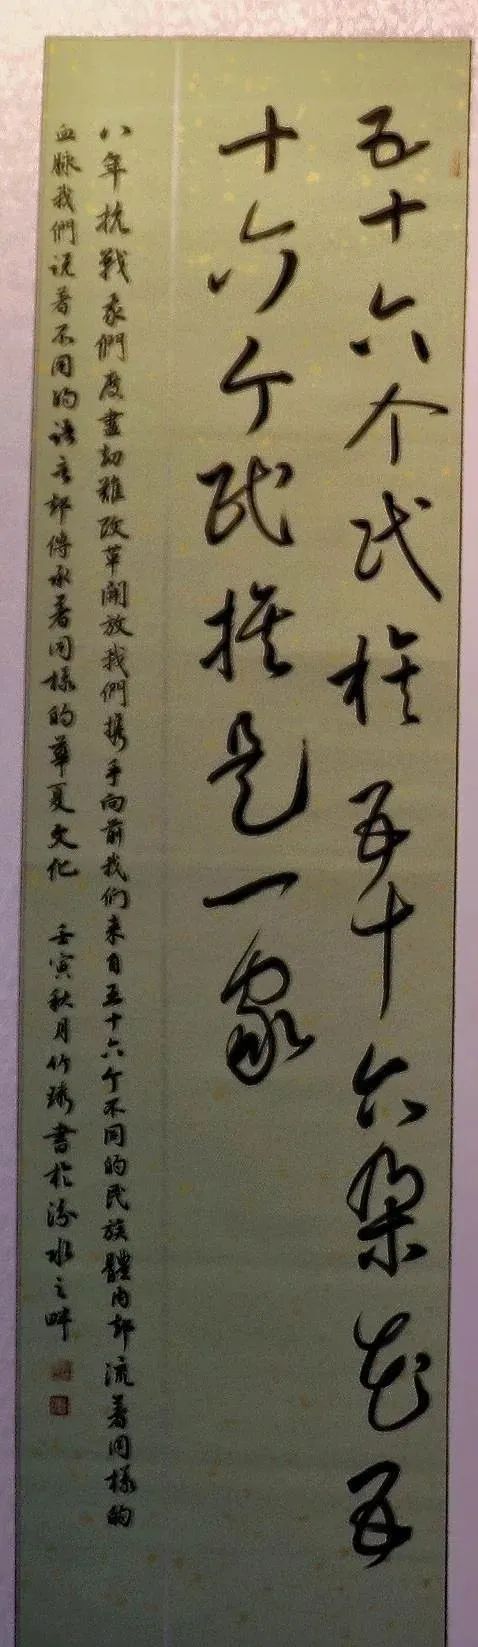 五十六个民族五十六朵花五
十六个民族是一家
八年抗戰我們度盡劫難改革開放我們携手向前我们来自五十六个不同的民族體内都流着同樣的
血脉我們说着不同的语言却傳承着同樣的華夏文化 壬寅秋月竹琇書於汾水之畔